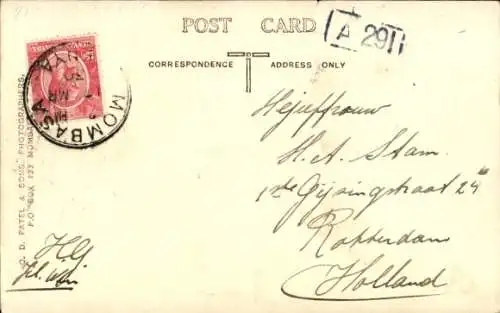 POST CARD
A 291
CORRESPONDENCE
ADDRESS ONLY
MOMBASA
D. PATEL & SONS, PHOTOGRAPHERS,
P.O. BOX 127 MOMBASA
Mejuffrouw
H. A. Stam.
1ste Gijsingstraat 24
Rotterdam
Holland